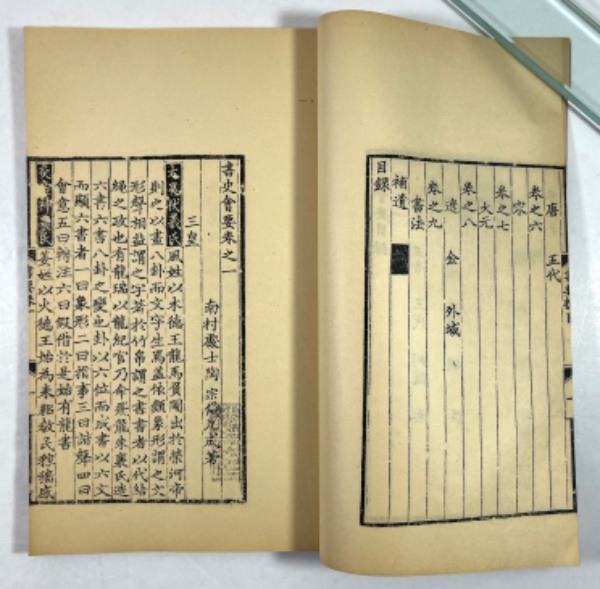 唐 五代
卷之六
宋
卷之七
大元
卷之八
遼 金 外域
卷之九
書法
補遺
目錄
書史會要卷之一
南村處士陶宗儀九成著
三皇
太昊伏羲氏風姓以木德王龍馬負圖出於榮河帝
則之以畫八卦而文字生焉蓋依類象形謂之文
形聲相益謂之字著於竹帛謂之書書者以代結
繩之政也有龍瑞以龍紀官乃命飛龍朱襄氏造
六書六書八卦之變也卦以六位而成書以六文
而顯六書者一曰象形二曰指事三曰諧聲四曰
會意五曰轉注六曰假借於是始有龍書
炎帝神農氏姜姓以火德王始為耒耜教民稼穡咸